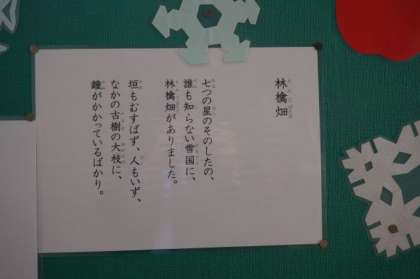 林檎畑
七つの星のそのしたの、
誰も知らない雪国に、
林檎畑がありました。
垣もむすばず、人もいず、
なかの古樹の大枝に、
鐘がかかっているばかり。